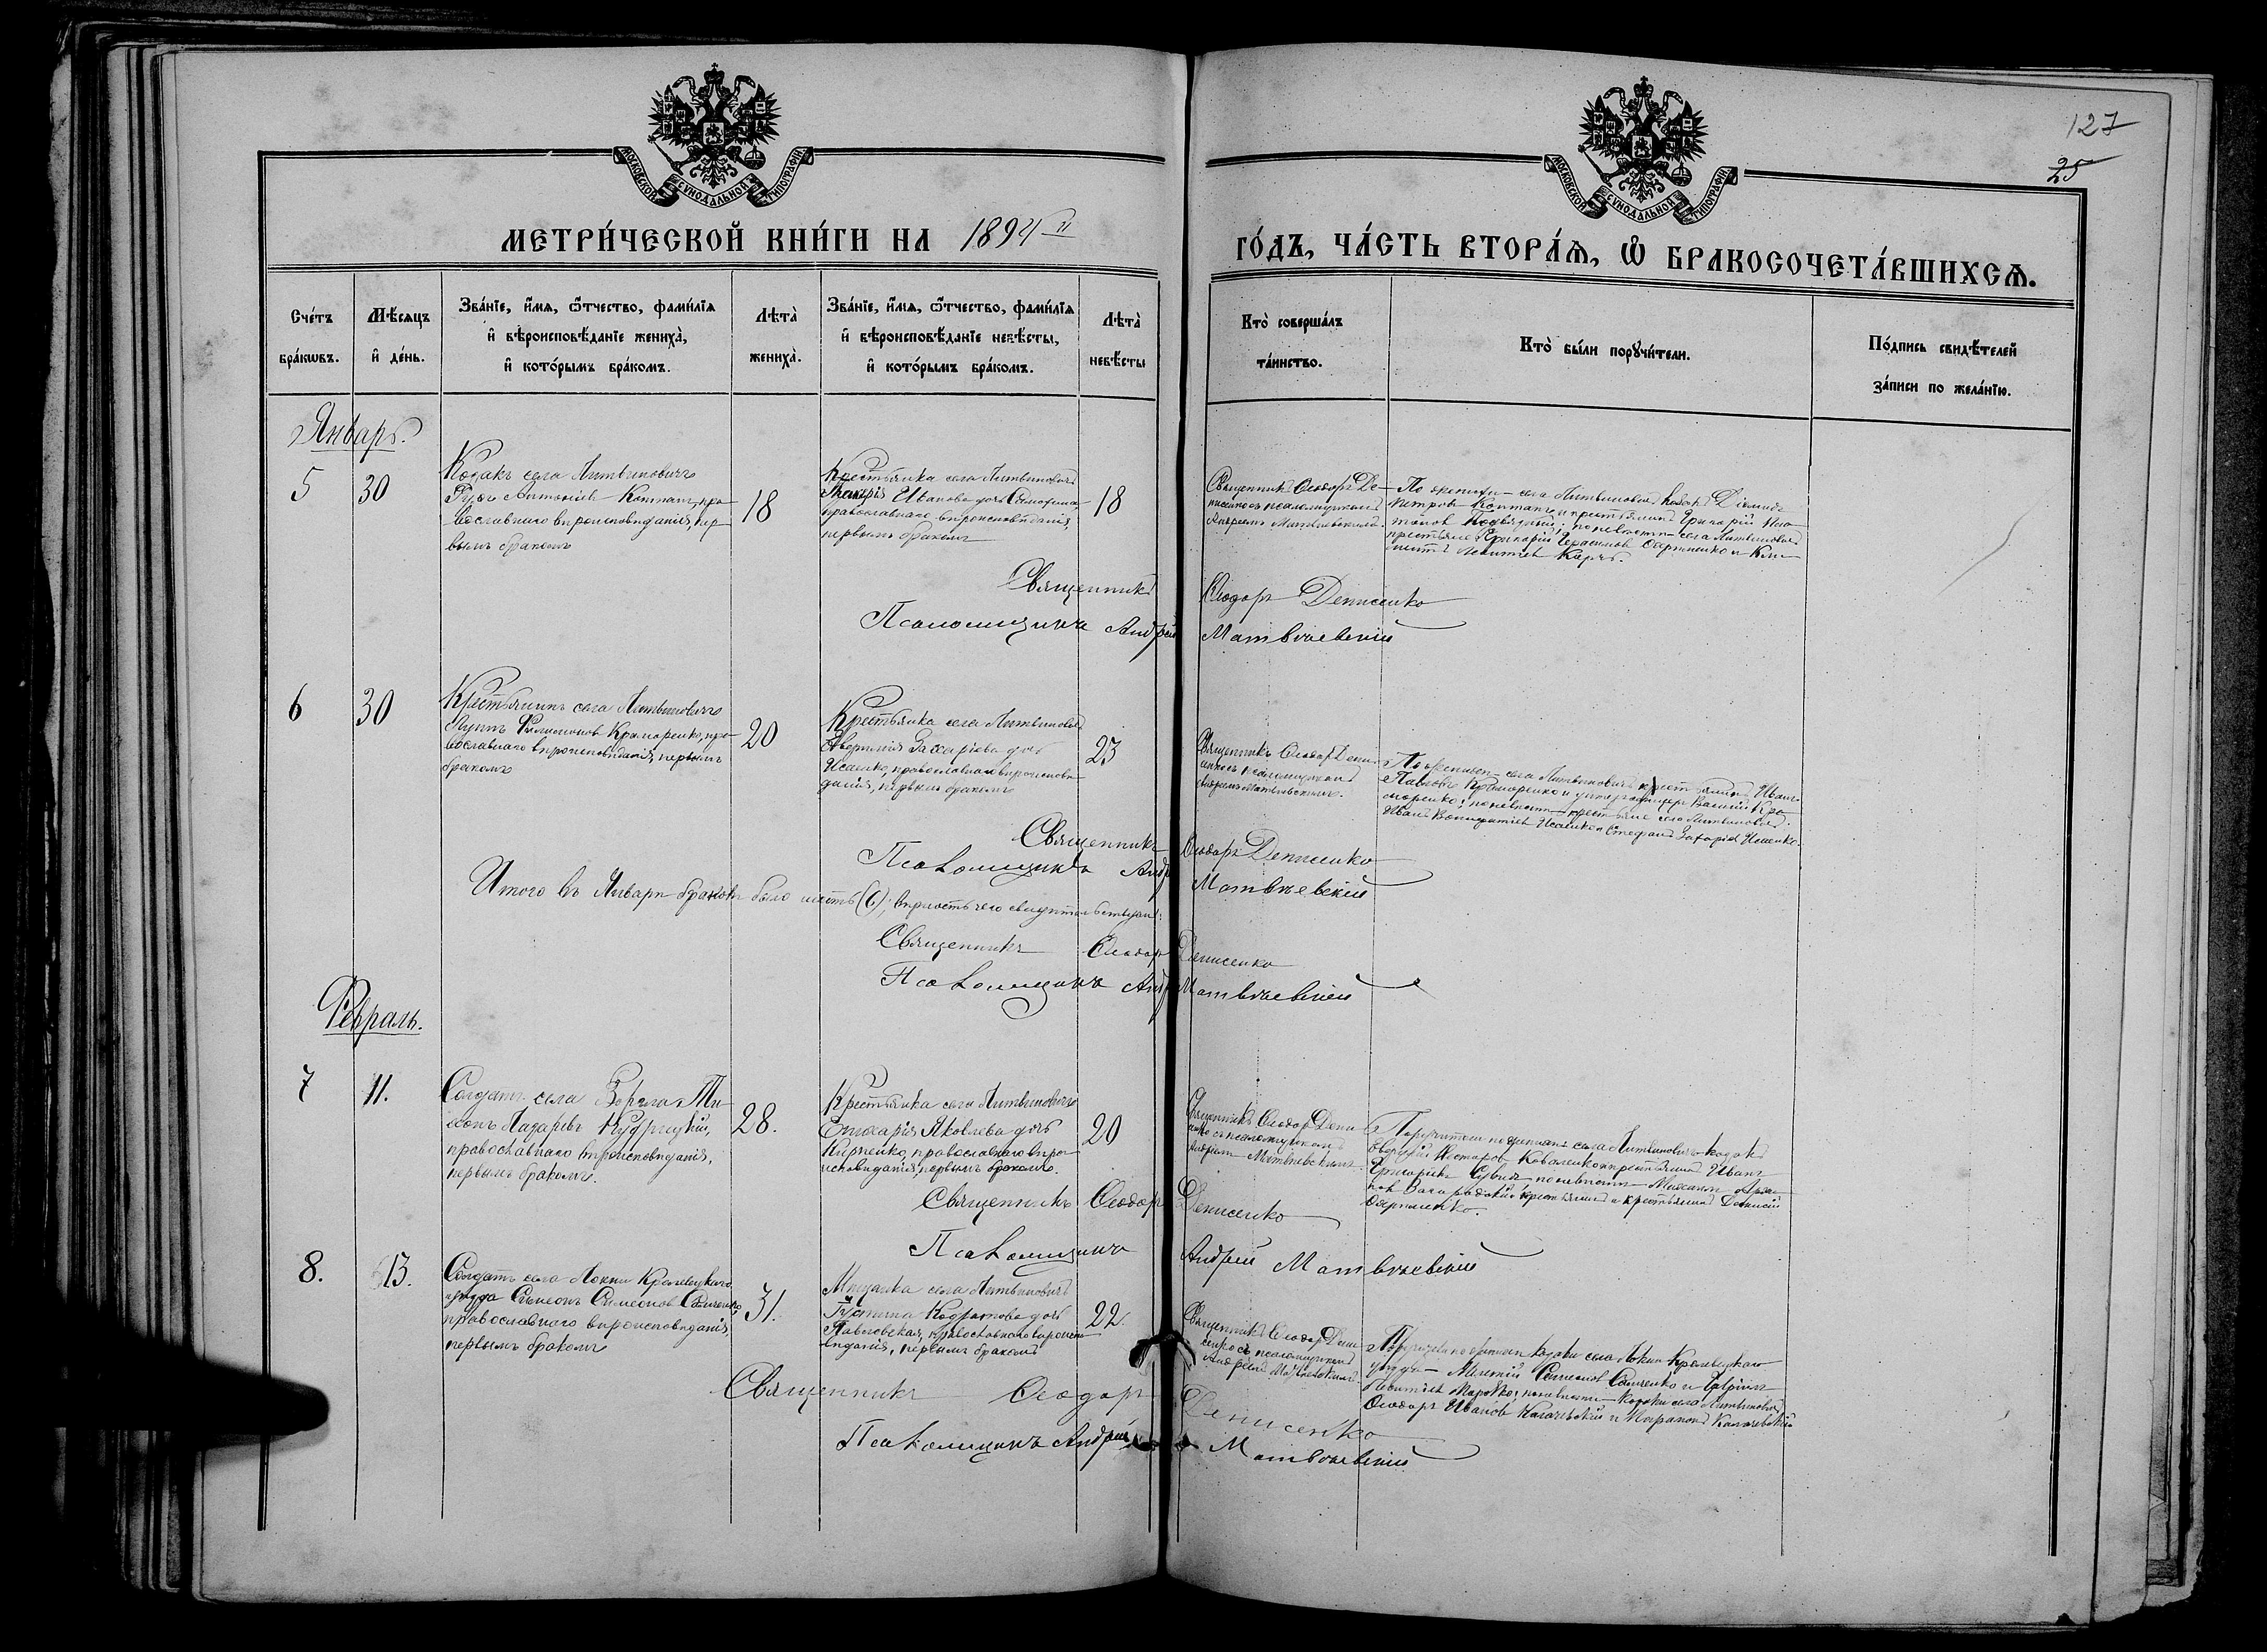 127
25
МОСКОВСКОЙ СѴНОДАЛЬНОЙ ТИПОГРАФІИ
МОСКОВСКОЙ СѴНОДАЛЬНОЙ ТИПОГРАФІИ
МЕТРИ́ЧЕСКОЙ КНИ́ГИ НА 1894й
ГО́ДЪ, ЧА́СТЬ ВТОРА́Ѧ, Ѿ БРАКОСОЧЕТА́ВШИХСѦ.
Сче́тъ
бра́кѡвъ.
Мѣ́сяцъ
и҆ де́нь.
Зва́нїе, и҆́мѧ, ѻ҆́тчество, фами́лїѧ
и҆ вѣроисповѣ́данїе жениха̀,
и҆ кото́рымъ бра́комъ.
Лѣта̀
жениха̀.
Зва́нїе, и҆́мѧ, ѻ҆́тчество, фами́лїѧ
и҆ вѣроисповѣ́данїе невѣ́сты,
и҆ кото́рымъ бра́комъ.
Лѣта̀
невѣ́сты
Кто̀ соверша́лъ
та́инство.
Кто̀ бы́ли порꙋчи́тели.
По́дпись свидѣ́телей
за́писи по жела́нїю.
Январь.
5
30
Козакъ села Литвиновичъ
Антоніевъ Коптанъ, пра-
вославнаго вѣроисповѣданія, пер-
вымъ бракомъ
18
Крестьянка села Литвиновичъ
Иванова дочь
православнаго вѣроисповѣданія,
первымъ бракомъ
18
Священникъ Ѳеодоръ Де-
нисенко съ псаломщикомъ
Андреемъ Матвѣевскимъ.
По женихѣ - села Литвиновичъ козакъ Діомидъ
Петровъ Коптанъ и крестьянинъ Григорій
по невѣстѣ - села Литвиновичъ
крестьяне Григорій Герасимовъ и
Священникъ Ѳеодоръ Денисенко
Псаломщикъ Андрей Матвѣевскій
6
30
Крестьянинъ села Литвиновичъ
Лупъ Филимоновъ Крамаренко, пра-
вославнаго вѣроисповѣданія, первымъ
бракомъ
20
Крестьянка села Литвиновичъ
Захаріева дочь
Исаенко, православнаго вѣроисповѣ-
данія, первымъ бракомъ
23
Священникъ Ѳеодоръ Дени-
сенко съ псаломщикомъ
Андреемъ Матвѣевскимъ.
По женихѣ - села Литвиновичъ крестьянинъ Иванъ
Павловъ Крамаренко и унтеръ-офицеръ Василій Кра-
маренко; по невѣстѣ - крестьяне села Литвиновичъ
Иванъ Исаенко и Стефанъ Захаріевъ Исаенко.
Священникъ Ѳеодоръ Денисенко
Псаломщикъ Андрей Матвѣевскій
Итого въ Январѣ браковъ было шесть (6); вѣрность чего свидѣтельствуемъ:
Священникъ Ѳеодоръ Денисенко
Псаломщикъ Андрей Матвѣевскій
Февраль.
7
11.
Солдатъ села Ти-
хонъ Лазаревъ Кудрицкій,
православнаго вѣроисповѣданія,
первымъ бракомъ.
28.
Крестьянка села Литвиновичъ
Яковлева дочь
Кирпенко, православнаго вѣро-
исповѣданія, первымъ бракомъ.
20
Священникъ Ѳеодоръ Дени-
сенко съ псаломщикомъ
Андреемъ Матвѣевскимъ.
Поручители по женихѣ села Литвиновичъ козакъ
Несторовъ Коваленко и крестьянинъ Иванъ
Григорьевъ по невѣстѣ - Михаилъ
крестьянинъ и крестьянинъ Діонисій
Священникъ Ѳеодоръ Денисенко
Псаломщикъ Андрей Матвѣевскій
8.
13.
Солдатъ села Локни Кролевецкаго
уѣзда Симеонъ Симеоновъ Санченко,
православнаго вѣроисповѣданія,
первымъ бракомъ
31.
Мѣщанка села Литвиновичъ
Іустина Кодратова дочь
Павловская, православнаго вѣроиспо-
вѣданія, первымъ бракомъ
22.
Священникъ Ѳеодоръ Дени-
сенко съ псаломщикомъ
Андреемъ Матвѣевскимъ.
Поручители по женихѣ козаки села Локни Кролевецкаго
уѣзда - Мелетій Симеоновъ Санченко и
по невѣстѣ - козаки села Литвиновичъ
Ѳеодоръ Ивановъ Калачевскій и Калачевскій
Священникъ Ѳеодоръ Денисенко
Псаломщикъ Андрей Матвѣевскій